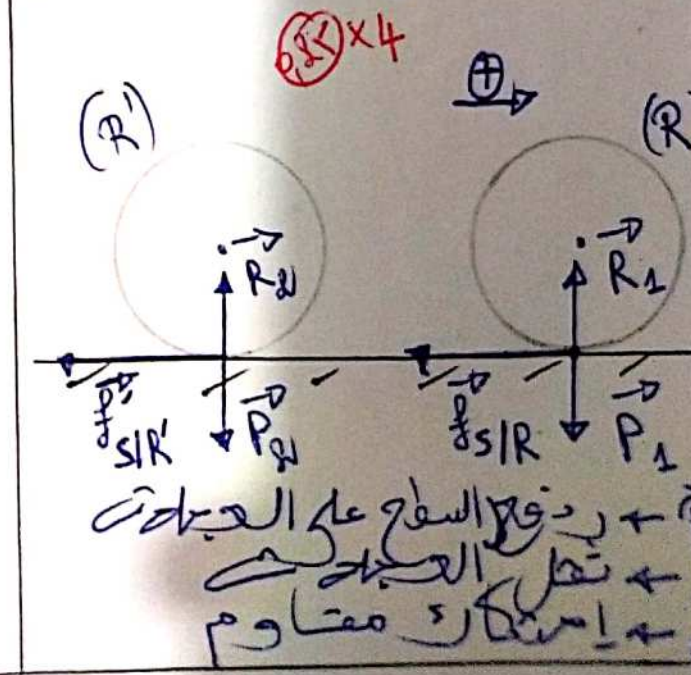 0,25 ×4
⊕→
(R') (R
R⃗2 R⃗1
f⃗' S/R' P⃗2 f⃗ S/R P⃗1
← دفع السطح على العجلات
← ثقل العجلات
← إحتكاك مقاوم